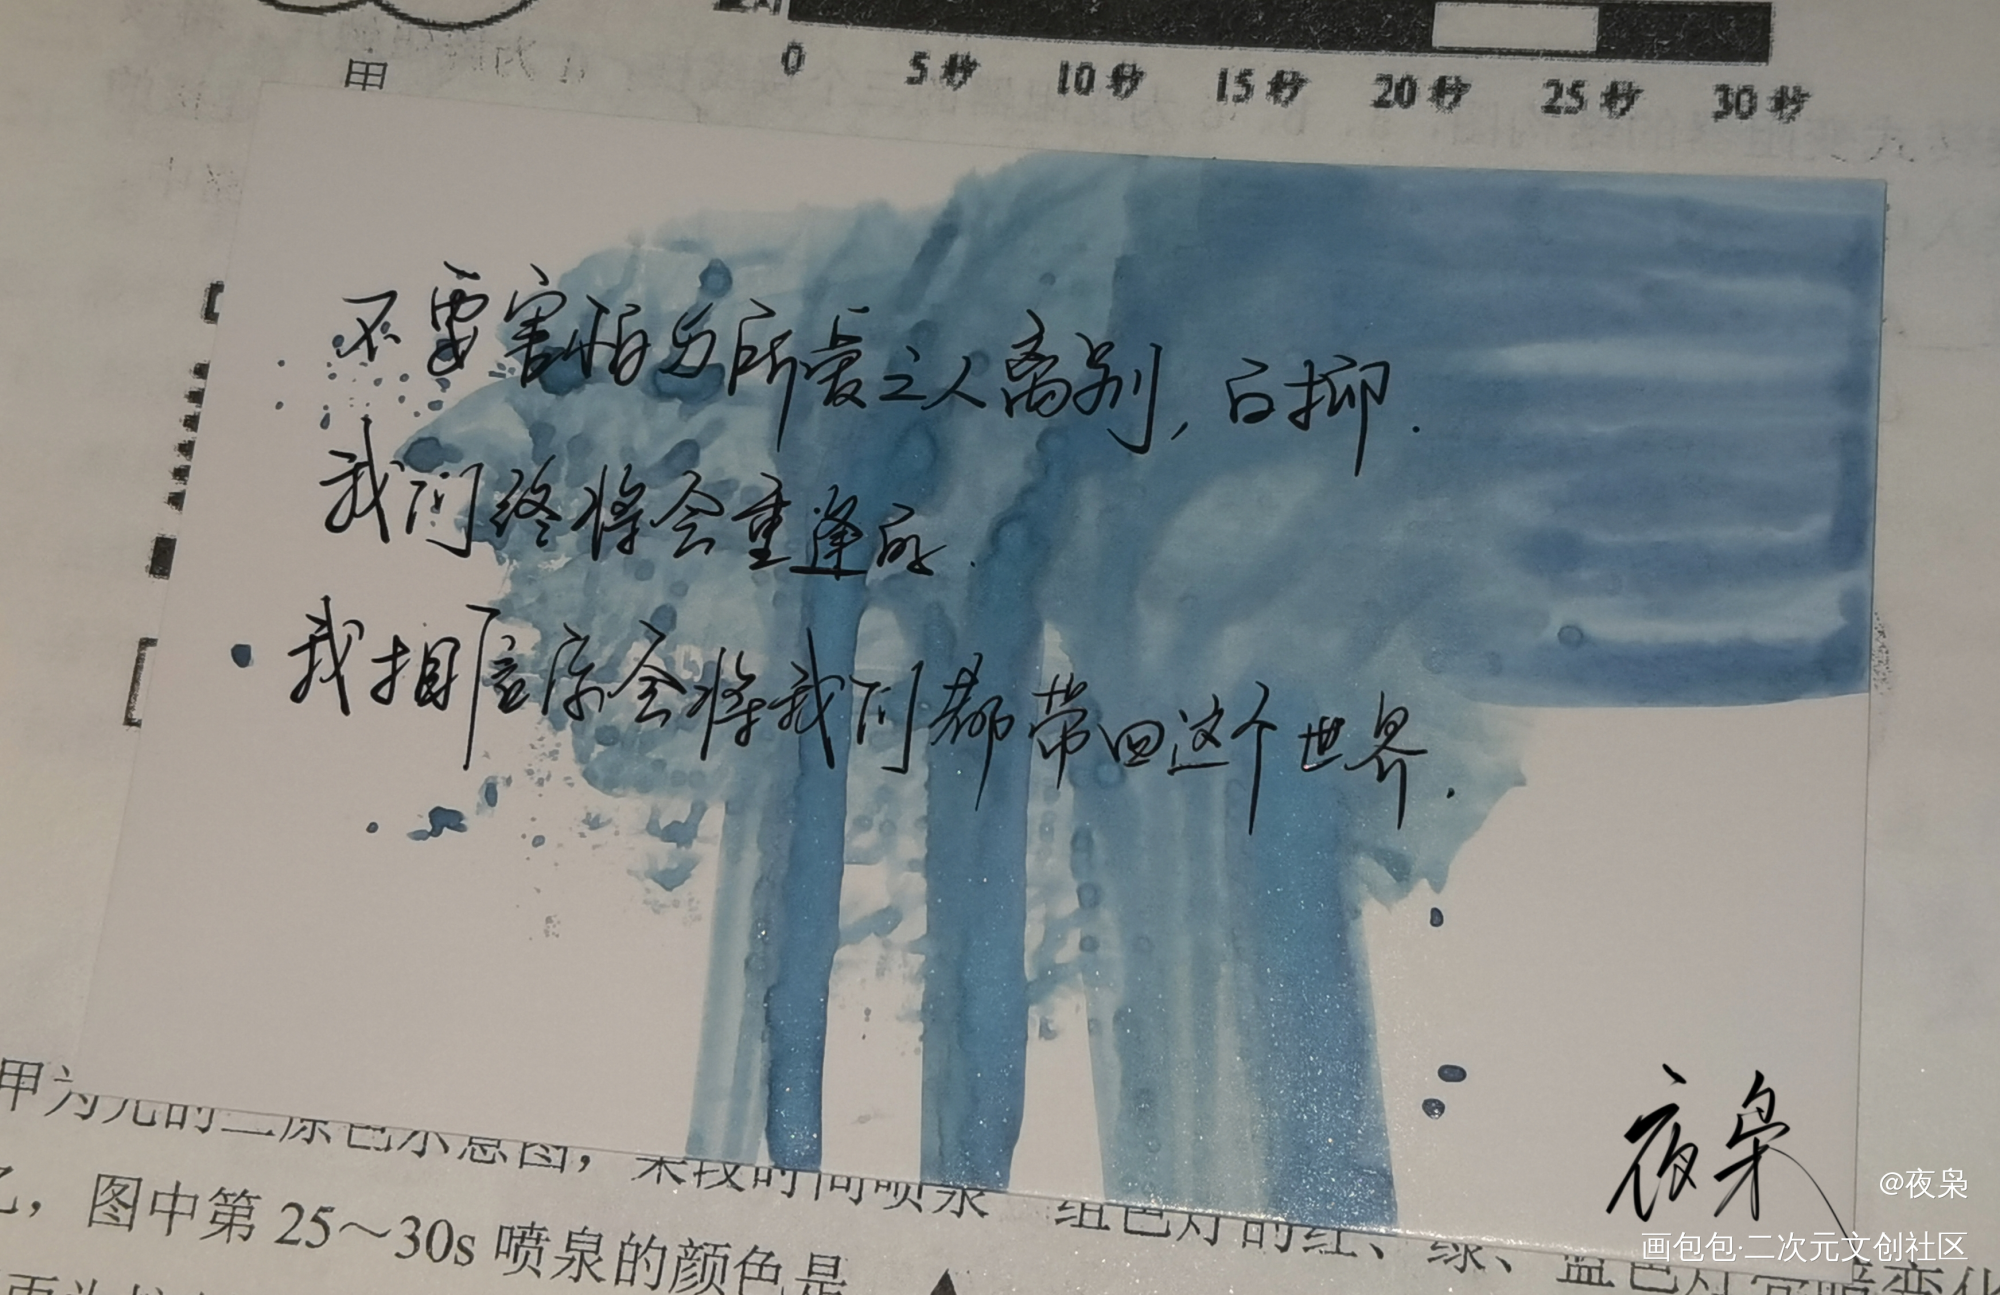 甲
0 5秒 10秒 15秒 20秒 25秒 30秒
不要害怕与所爱之人离别,白抑.
我们终将会重逢的.
我相信你会将我们都带回这个世界.
夜枭
@夜枭
画包包·二次元文创社区
甲为光的三原色示意图，某段时间喷泉 组色灯的红、绿、蓝色灯
乙，图中第25～30s喷泉的颜色是